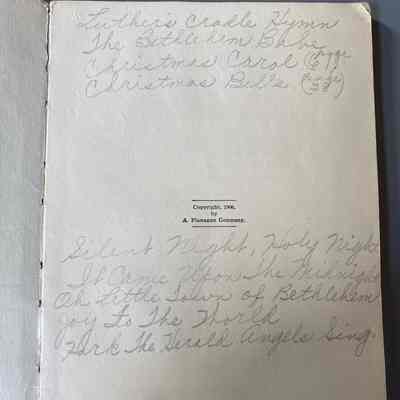 Luther's Cradle Hymn
The Bethlehem Babe
Christmas Carol (page
Christmas Bells (page
Copyright, 1906,
by
A. Flanagan Company.
Silent Night, Holy Night
It Came Upon The Midnight
Oh Little Town of Bethlehem
Joy To The World
Hark The Herald Angels Sing.